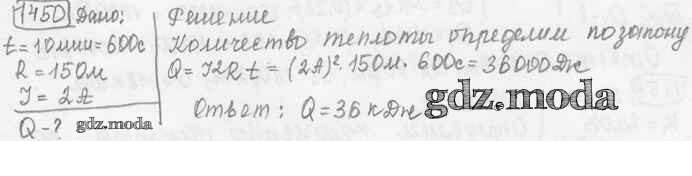 1450 Дано:
t=10мин=600с
R=150м
I=2A
Q-?
gdz.moda
Решение
Количество теплоты определим по закону
Q=I2Rt=(2A)²·150м·600с=36000Дж
Ответ: Q=36кДж
gdz.moda